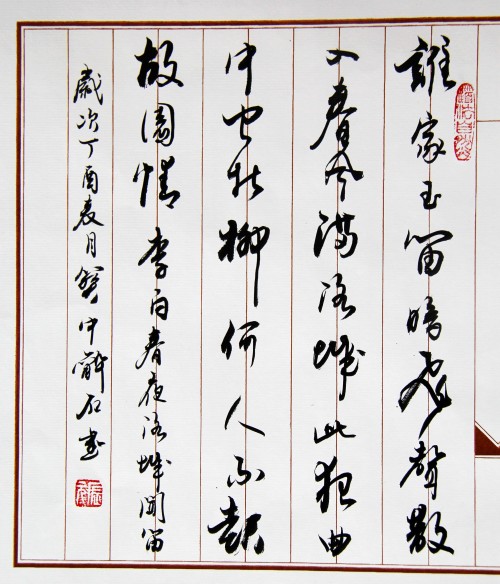 誰家玉笛暗飛聲散
入春風滿洛城此夜曲
中聞折柳何人不起
故園情 李白春夜洛城聞笛
歲次丁酉 月 中 石書